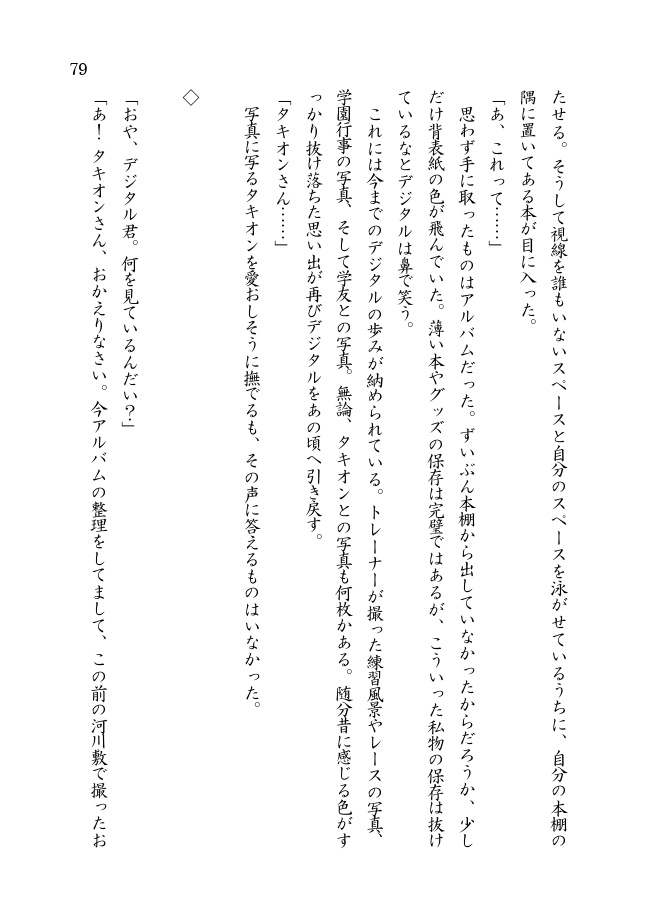 79
たせる。そうして視線を誰もいないスペースと自分のスペースを泳がせているうちに、自分の本棚の
隅に置いてある本が目に入った。
「あ、これって……」
　思わず手に取ったものはアルバムだった。ずいぶん本棚から出していなかったからだろうか、少し
だけ背表紙の色が飛んでいた。薄い本やグッズの保存は完璧ではあるが、こういった私物の保存は抜け
ているなとデジタルは鼻で笑う。
　これには今までのデジタルの歩みが納められている。トレーナーが撮った練習風景やレースの写真、
学園行事の写真、そして学友との写真。無論、タキオンとの写真も何枚かある。随分昔に感じる色がす
っかり抜け落ちた思い出が再びデジタルをあの頃へ引き戻す。
「タキオンさん……」
　写真に写るタキオンを愛おしそうに撫でるも、その声に答えるものはいなかった。
◇
「おや、デジタル君。何を見ているんだい？」
「あ！ タキオンさん、おかえりなさい。今アルバムの整理をしてまして、この前の河川敷で撮ったお